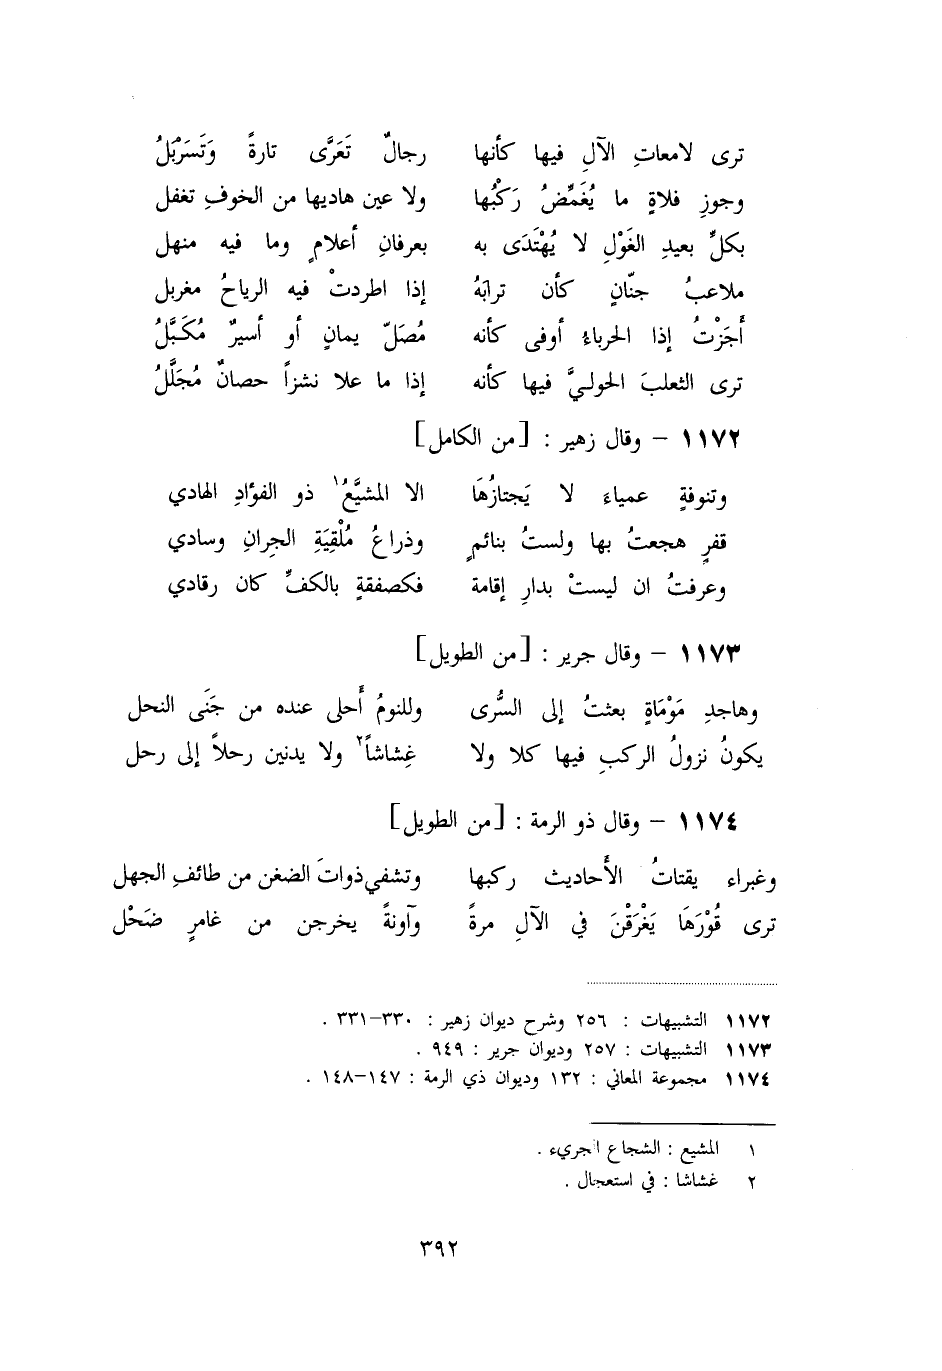 ترى لامعاتِ الآلِ فيها كأنها رجالٌ تَعَرَّى تارةً وَتَسَرْبَلُ
وجوزِ فلاةٍ ما يُغَمِّضُ رَكْبُها ولا عين هاديها من الخوفِ تغفل
بكلِّ بعيدِ الغَوْلِ لا يُهْتَدَى به بعرفانِ أعلامٍ وما فيه منهل
ملاعبُ جنّانٍ كأن ترابَهُ إذا اطردتْ فيه الرياحُ مغربل
أَجَزْتُ إذا الحرباءُ أوفى كأنه مُصَلّ يمانٍ أو أسيرٌ مُكَبَّلُ
ترى الثعلبَ الحوليَّ فيها كأنه إذا ما علا نشزاً حصانٌ مُجَلَّلُ
١١٧٢ – وقال زهير : [من الكامل]
وتنوفةٍ عمياءَ لا يَجتازُهَا الا المشيَّعُ١ ذو الفؤادِ الهادي
قفرٍ هجعتُ بها ولستُ بنائمٍ وذراعُ مُلْقِيَةِ الجِرانِ وسادي
وعرفتُ ان ليستْ بدارِ إقامة فكصفقةٍ بالكفِّ كان رقادي
١١٧٣ – وقال جرير : [من الطويل]
وهاجدِ مَوْمَاةٍ بعثتُ إلى السُّرى وللنومُ أَحلى عنده من جَنَى النحل
يكونُ نزولُ الركبِ فيها كلا ولا غِشاشاً٢ ولا يدنين رحلاً إلى رحل
١١٧٤ – وقال ذو الرمة : [من الطويل]
وغبراء يقتاتُ الأَحاديث ركبها وتشفي ذواتَ الضغن من طائفِ الجهل
ترى قُوْرَهَا يَغْرَقْنَ في الآلِ مرةً وآونةً يخرجن من غامرٍ ضَحْل
١١٧٢ التشبيهات : ٢٥٦ وشرح ديوان زهير : ٣٣٠–٣٣١ .
١١٧٣ التشبيهات : ٢٥٧ وديوان جرير : ٩٤٩ .
١١٧٤ مجموعة المعاني : ١٣٢ وديوان ذي الرمة : ١٤٧–١٤٨ .
١ المشيع : الشجاع الجريء .
٢ غشاشا : في استعجال .
٣٩٢